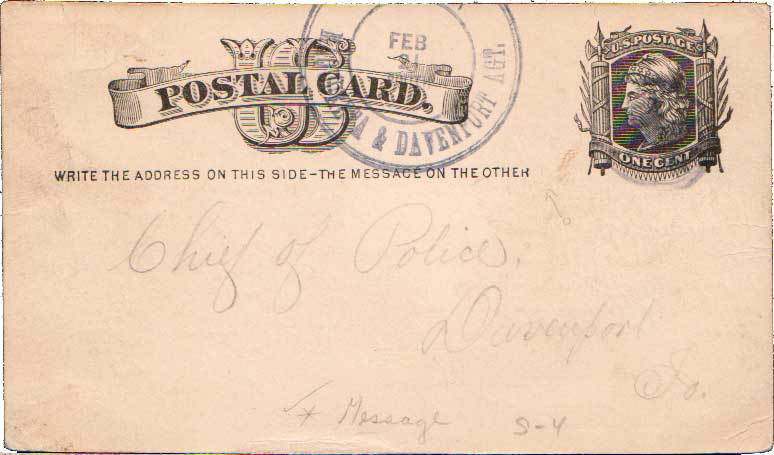 FEB
US
POSTAL CARD.
& DAVENPORT AGT.
U.S. POSTAGE
ONE CENT
WRITE THE ADDRESS ON THIS SIDE-THE MESSAGE ON THE OTHER
Chief of Police,
Davenport
Io.
* Message S-4